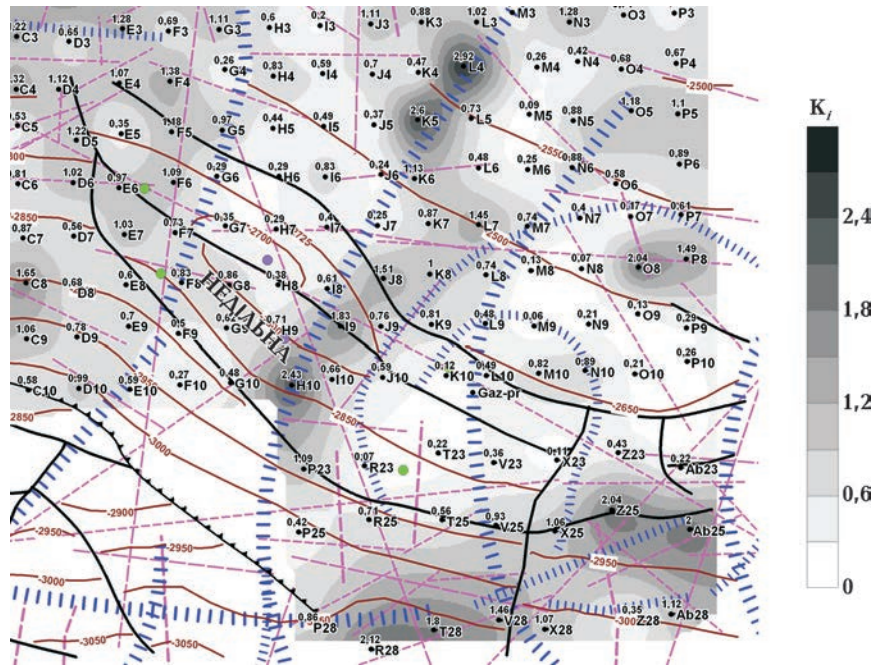 M3 1,28 N3 O3 P3
1,28 E3 0,69 F3 1,11 G3 0,6 H3 0,2 I3 1,11 J3 0,88 K3 1,02 L3
C3 0,65 D3
0,26 G4 0,83 H4 0,59 I4 0,7 J4 0,47 K4 2,92 L4 0,26 M4 0,42 N4 0,68 O4 0,67 P4
C4 1,12 D4 1,07 E4 1,38 F4
-2500
K_i
0,53 C5 1,22 D5 0,35 E5 F5 0,97 G5 0,44 H5 0,49 I5 0,37 J5 2,6 K5 0,73 L5 0,09 M5 0,88 N5 1,18 O5 1,1 P5
-2550
0,81 C6 1,02 D6 0,97 E6 1,09 F6 0,29 G6 0,29 H6 0,83 I6 0,24 J6 1,13 K6 0,48 L6 0,25 M6 0,88 N6 0,58 O6 0,89 P6
2,4
-2850 -2700 2725 -2500
0,87 C7 0,56 D7 1,03 E7 0,73 F7 0,35 G7 0,29 H7 0,4 I7 0,25 J7 0,87 K7 1,45 L7 0,74 M7 0,4 N7 0,17 O7 0,61 P7
1,65 C8 0,68 D8 0,6 E8 0,83 F8 0,86 G8 0,38 H8 0,61 I8 1,51 J8 1 K8 0,74 L8 0,13 M8 0,07 N8 2,04 O8 1,49 P8
1,8
НЕДІЛЬНА
1,06 C9 0,78 D9 0,7 E9 0,5 F9 G9 0,71 H9 1,83 I9 0,76 J9 0,81 K9 0,48 L9 0,06 M9 0,21 N9 0,13 O9 0,29 P9
1,2
0,58 C10 0,99 D10 0,59 E10 0,27 F10 0,48 G10 2,43 H10 0,66 I10 0,59 J10 0,12 K10 0,49 L10 0,82 M10 0,89 N10 0,21 O10 0,26 P10
-2950
Gaz-pr
-2850 -2850 -2650
-3000
1,09 P23 0,07 R23 0,22 T23 0,36 V23 0,11 X23 0,43 Z23 0,22 Ab23
0,6
-2900
-2950 0,42 P25 0,71 R25 0,56 T25 0,93 V25 1,06 X25 2,04 Z25 2 Ab25
-2950 -2950
-3000
0
0,86 P28 1,8 T28 1,46 V28 1,07 X28 0,35 Z28 1,12 Ab28
-3050 -3050
2,12 R28